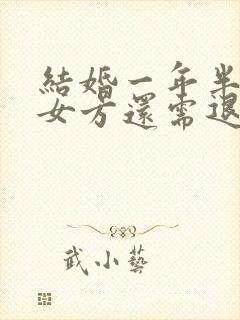 結婚一年半
女方還需退
武小藝